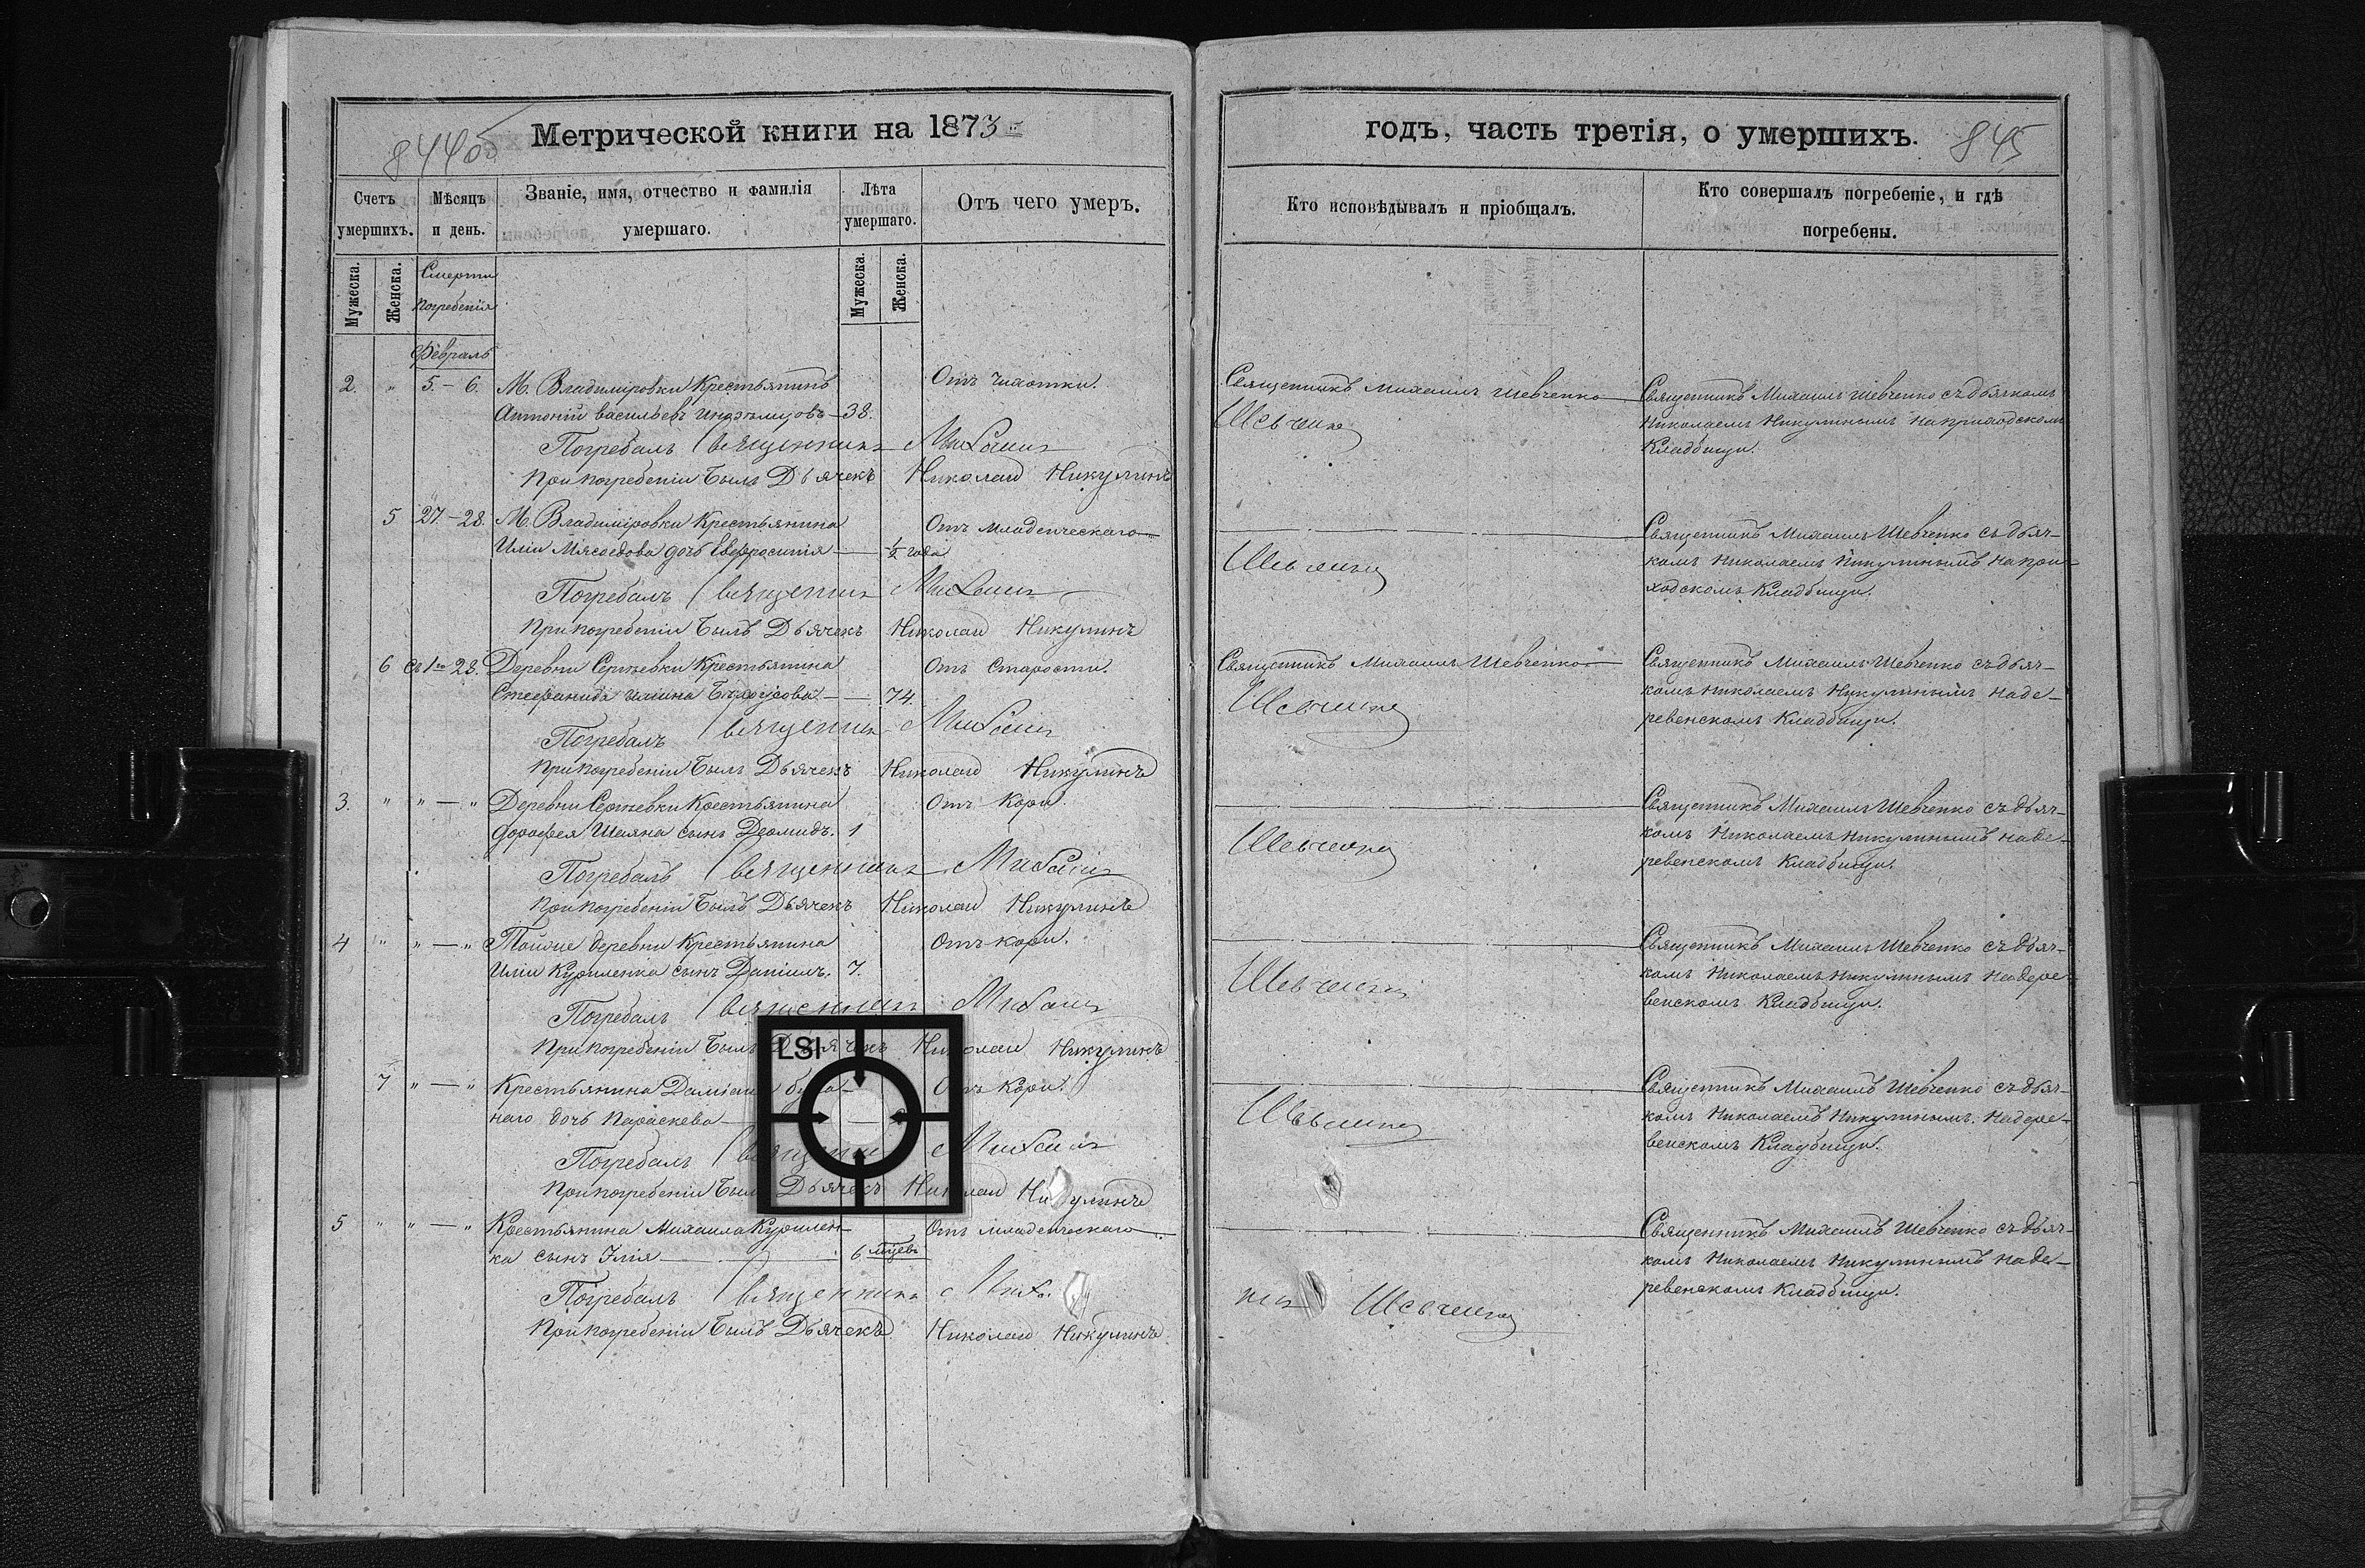 844об
Метрической книги на 1873
Счетъ умершихъ.
Мѣсяцъ и день.
Званіе, имя, отчество и фамилія умершаго.
Лѣта умершаго.
Отъ чего умеръ.
Мужеска.
Женска.
Смерти
Погребенія
Мужеска.
Женска.
Февраль
2. " 5.–6. М. Владиміровки Крестьянинъ Отъ чахотки.
Антоній Васильевъ 38.
Погребалъ Священникъ Михаилъ
При погребеніи былъ Дьячекъ Николай Никулинъ
5 27.–28. М. Владиміровки Крестьянина Отъ младенческаго
Иліи Мясоедова дочь Евфросинія ½ года
Погребалъ Священникъ Михаилъ
При погребеніи былъ Дьячекъ Николай Никулинъ
6 28. Деревни Сергѣевки Крестьянина Отъ старости.
Стефанида 74.
Погребалъ Священникъ Михаилъ
При погребеніи былъ Дьячекъ Николай Никулинъ
3. " " — " Деревни Сергѣевки Крестьянина Отъ кори.
Дорофея сынъ Деомидъ. 1
Погребалъ Священникъ Михаилъ
При погребеніи былъ Дьячекъ Николай Никулинъ
4 " " — " Тойже деревни Крестьянина Отъ кори.
Иліи Куриленка сынъ Даніилъ. 7.
Погребалъ Священникъ Михаилъ
При погребеніи былъ Дьячекъ Николай Никулинъ
LSI
7 " — " Крестьянина Отъ кори.
наго дочь Параскева
Погребалъ Михаилъ
При погребеніи былъ Дьячекъ Николай Никулинъ
5 " " — " Крестьянина Михаила Курилен- Отъ младенческаго
ка сынъ Илія 6 мѣсѣцъ
Погребалъ Священникъ Миха
При погребеніи былъ Дьячекъ Николай Никулинъ
годъ, часть третія, о умершихъ.
845
Кто исповѣдывалъ и пріобщалъ.
Кто совершалъ погребеніе, и гдѣ погребены.
Священникъ Михаилъ Шевченко
Шевченко
Священникъ Михаилъ Шевченко съ дьячкомъ
Николаемъ Никулинымъ на приходскомъ
Кладбищи.
Шевченко
Священникъ Михаилъ Шевченко съ дьяч-
комъ Николаемъ Никулинымъ на при-
ходскомъ Кладбищи.
Священникъ Михаилъ Шевченко
Шевченко
Священникъ Михаилъ Шевченко съ дьяч-
комъ Николаемъ Никулинымъ на де-
ревенскомъ Кладбищи.
Шевченко
Священникъ Михаилъ Шевченко съ дьяч-
комъ Николаемъ Никулинымъ на де-
ревенскомъ Кладбищи.
Шевченко
Священникъ Михаилъ Шевченко съ дьяч-
комъ Николаемъ Никулинымъ на дере-
венскомъ Кладбищи.
Шевченко
Священникъ Михаилъ Шевченко съ дьяч-
комъ Николаемъ Никулинымъ на дере-
венскомъ Кладбищи.
Шевченко
Священникъ Михаилъ Шевченко съ дьяч-
комъ Николаемъ Никулинымъ на де-
ревенскомъ Кладбищи.